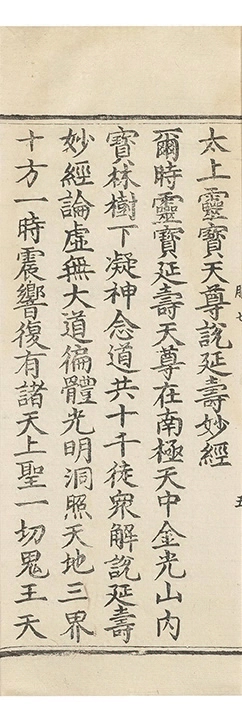 太上靈寶天尊說延壽妙經
爾時靈寶延壽天尊在南極天中金光山內
寶林樹下凝神念道共十千徒眾解說延壽
妙經論虛無大道徧體光明洞照天地三界
十方一時震響復有諸天上聖一切鬼王天